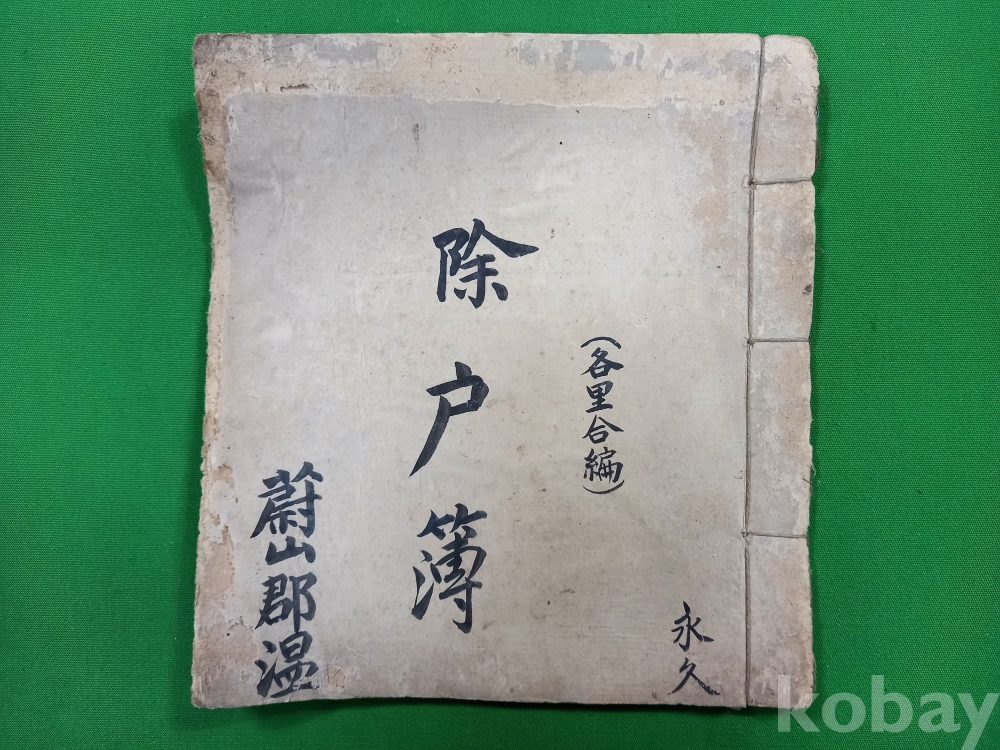 永久
(各里合編)
除户簿
蔚山郡温
kobay